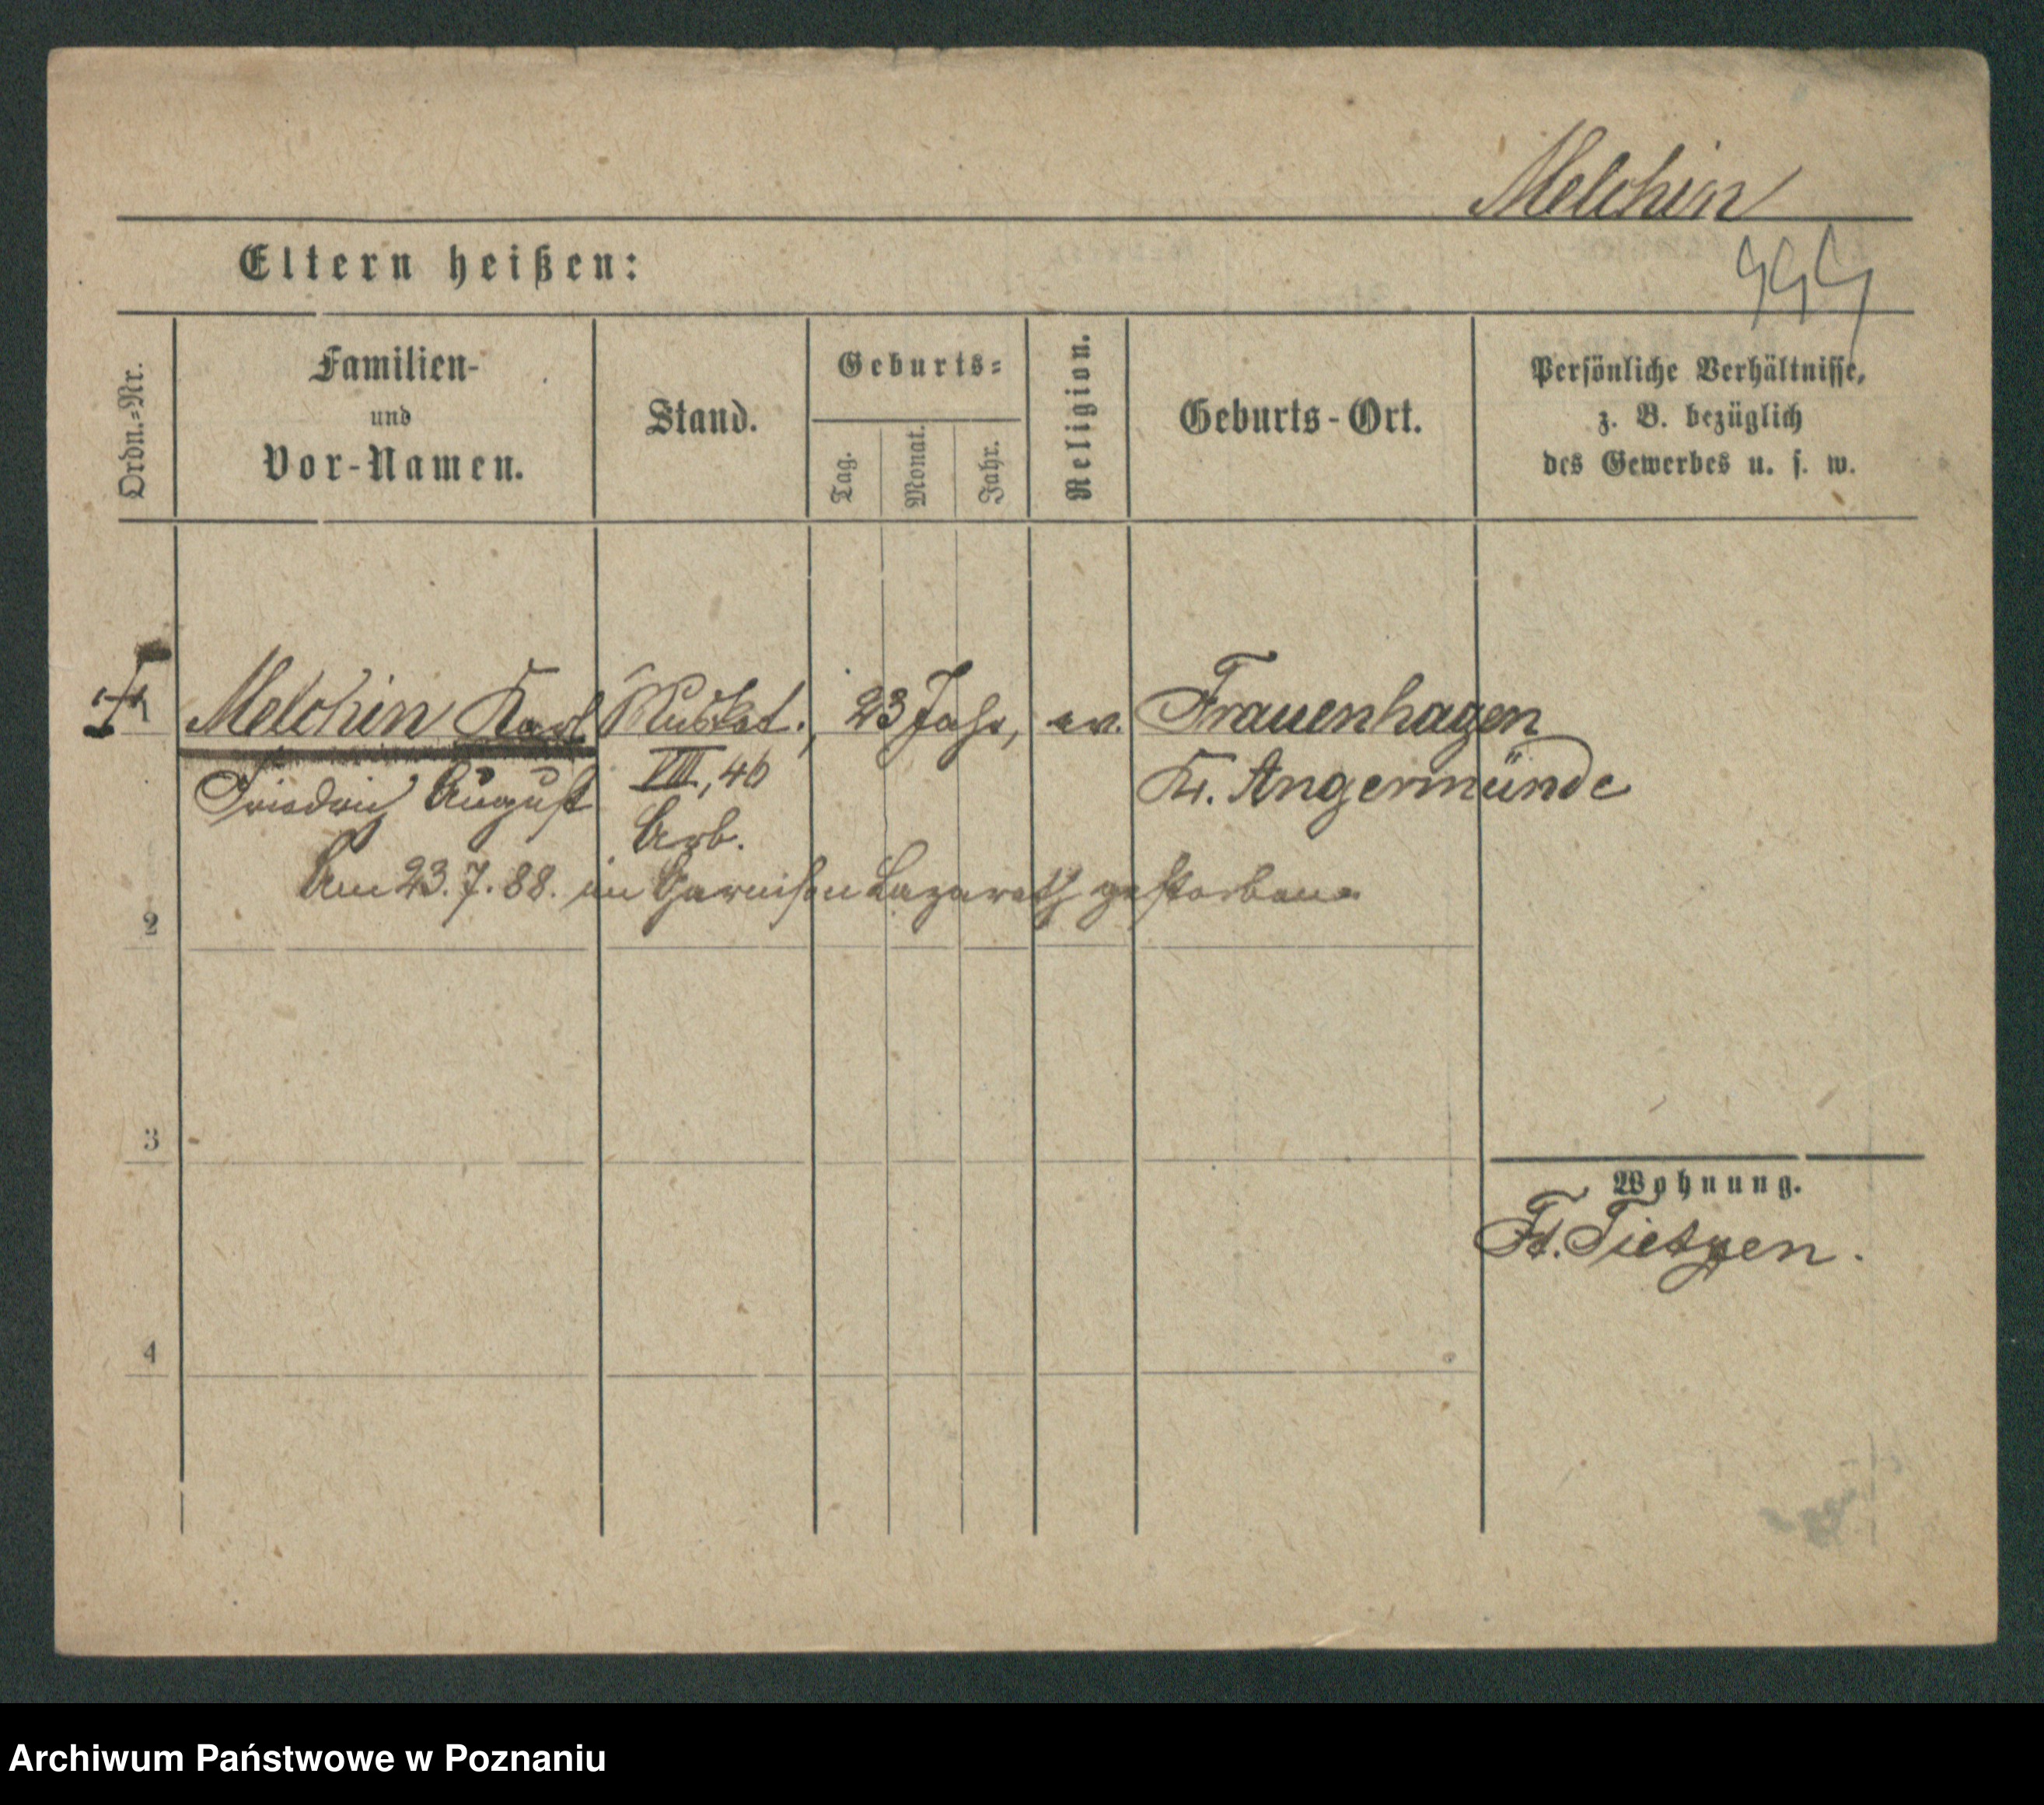 Melchin
Eltern heißen:
Ordn.=Nr.
Familien-
und
Vor-Namen.
Stand.
Geburts=
Tag.
Monat.
Jahr.
Religion.
Geburts-Ort.
Persönliche Verhältnisse,
z. B. bezüglich
des Gewerbes u. s. w.
Melchin Karl Musket., 23 Jahr, ev. Frauenhagen
Friedrich August VIII, 46 Kr. Angermünde
Arb.
Am 23.7.88. im Garnison Lazareth gestorben.
2
3
Wohnung.
Ft. Tietzen.
4
Archiwum Państwowe w Poznaniu